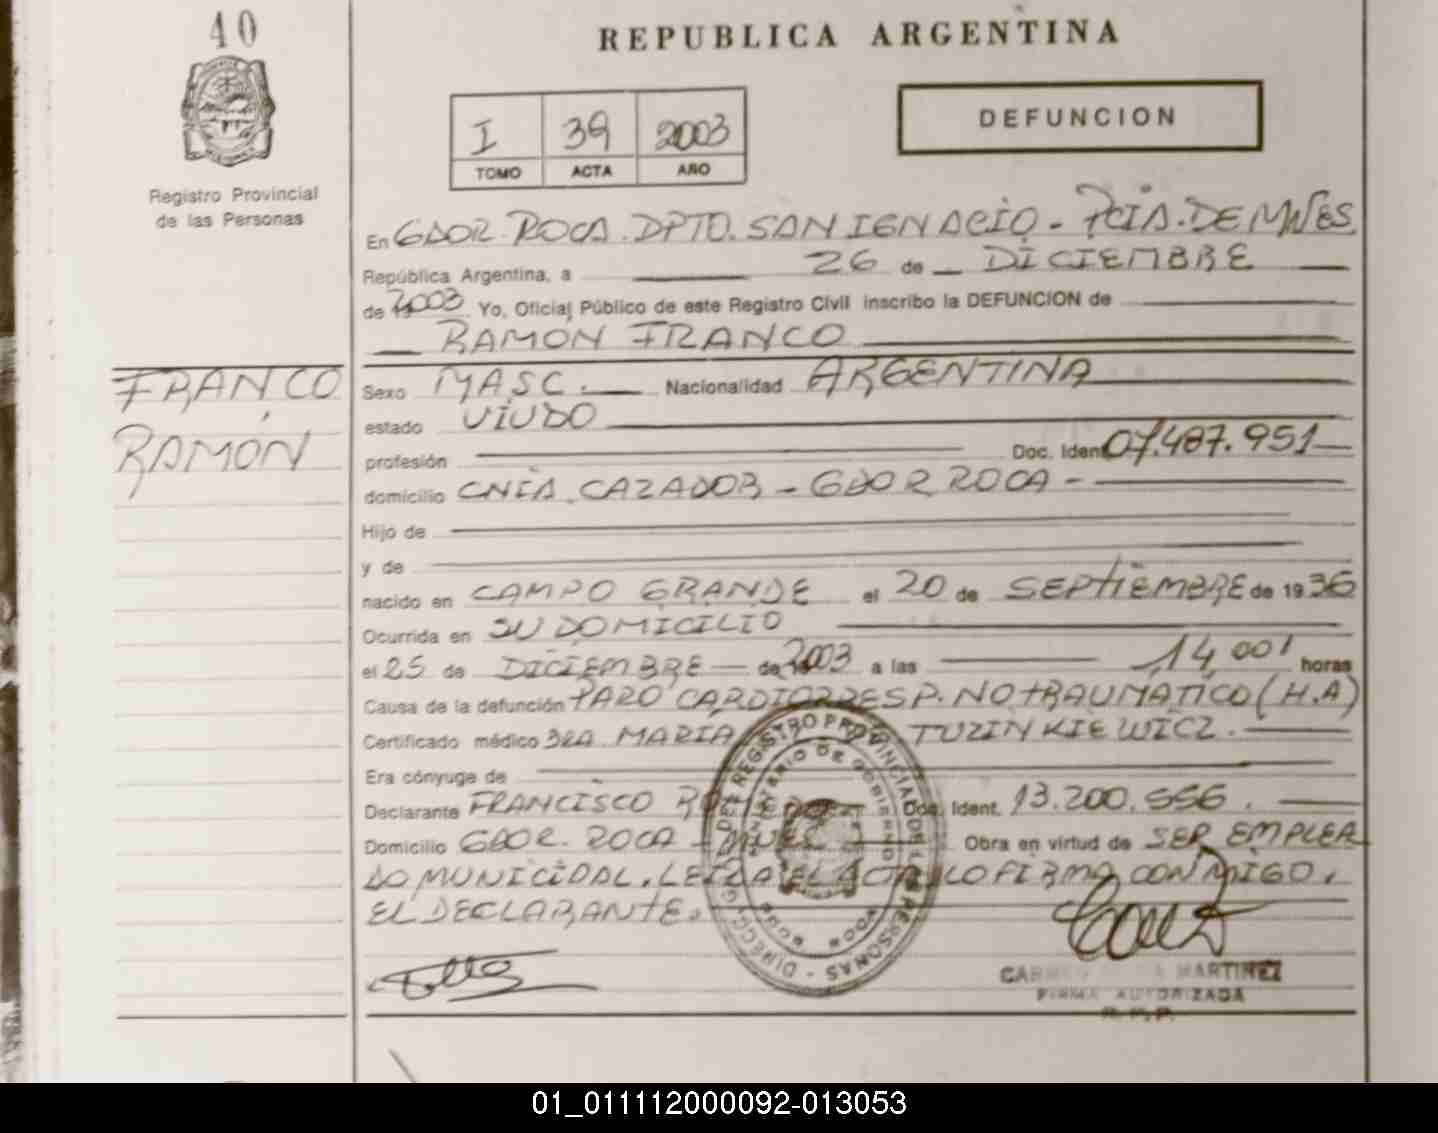 40
REPUBLICA ARGENTINA
I 39 2003
TOMO ACTA AÑO
DEFUNCION
Registro Provincial
de las Personas
En GDOR. ROCA. DPTO. SAN IGNACIO - PCIA. DE MNES.
República Argentina, a 26 de DICIEMBRE
de 2003 Yo, Oficial Público de este Registro Civil inscribo la DEFUNCION de
RAMÓN FRANCO
FRANCO
RAMÓN
Sexo MASC. Nacionalidad ARGENTINA
estado VIUDO
profesión Doc. Ident. 07.487.951
domicilio CNIA. CAZADOR - GDOR ROCA -
Hijo de
y de
nacido en CAMPO GRANDE el 20 de SEPTIEMBRE de 1936
Ocurrida en SU DOMICILIO
el 25 de DICIEMBRE de 2003 a las 14,00 horas
Causa de la defunción PARO CARDIORRESP. NO TRAUMATICO (H.A)
Certificado médico DRA MARIA TUZINKIEWICZ.
Era cónyuge de
Declarante FRANCISCO Doc. Ident. 13.200.556.
Domicilio GDOR. ROCA - Obra en virtud de SER EMPLEA
DO MUNICIPAL. LEIDA EL ACTA, LO FIRMA CONMIGO,
EL DECLARANTE.
DIRECC. GRAL. DEL REGISTRO PROVINCIAL DE LAS PERSONAS
MINISTERIO DE GOBIERNO
MARTINEZ
FIRMA AUTORIZADA
R. P. P.
01_011112000092-013053